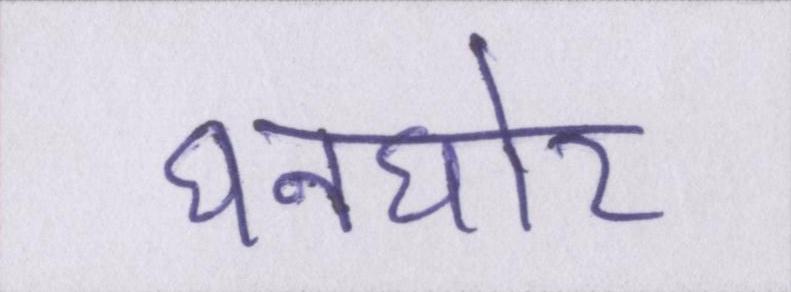 घनघोर